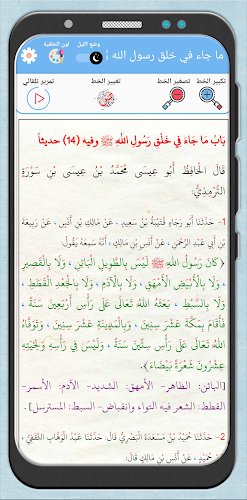 ما جاء في خلق رسول الله
وضع الليل
لون الخلفية
تكبير الخط
تصغير الخط
تغيير الخط
تمرير تلقائي
بَابُ مَا جَاءَ فِي خَلْقِ رَسُولِ اللهِ ﷺ وفيه (14) حديثاً
قَالَ الْحَافِظُ أَبُو عِيسَى مُحَمَّدُ بْنُ عِيسَى بْنِ سَوْرَةَ
التِّرْمِذِيُّ:
1- حَدَّثَنَا أَبُو رَجَاءٍ قُتَيْبَةُ بْنُ سَعِيدٍ ، عَنْ مَالِكِ بْنِ أَنَسٍ ، عَنْ رَبِيعَةَ
بْنِ أَبِي عَبْدِ الرَّحْمَنِ ، عَنْ أَنَسِ بْنِ مَالِكٍ ، أَنَّهُ سَمِعَهُ يَقُولُ:
(كَانَ رَسُولُ اللهِ ﷺ لَيْسَ بِالطَّوِيلِ الْبَائِنِ ، وَلَا بِالْقَصِيرِ
، وَلَا بِالْأَبْيَضِ الْأَمْهَقِ ، وَلَا بِالْآدَمِ ، وَلَا بِالْجَعْدِ الْقَطَطِ ،
وَلَا بِالسَّبْطِ ، بَعَثَهُ اللهُ تَعَالَى عَلَى رَأْسِ أَرْبَعِينَ سَنَةً ،
فَأَقَامَ بِمَكَّةَ عَشْرَ سِنِينَ ، وَبِالْمَدِينَةِ عَشْرَ سِنِينَ ، وَتَوَفَّاهُ
اللهُ تَعَالَى عَلَى رَأْسِ سِتِّينَ سَنَةً ، وَلَيْسَ فِي رَأْسِهِ وَلِحْيَتِهِ
عِشْرُونَ شَعْرَةً بَيْضَاءَ).
[البائن: الظاهر- الأمهق: الشديد- الآدم: الأسمر-
القطط: الشعر فيه التواء وانقباض- السبط: المسترسل].
2- حَدَّثَنَا حُمَيْدُ بْنُ مَسْعَدَةَ الْبَصْرِيُّ قَالَ: حَدَّثَنَا عَبْدُ الْوَهَّابِ الثَّقَفِيُّ ،
عَنْ حُمَيْدٍ ، عَنْ أَنَسِ بْنِ مَالِكٍ قَالَ: